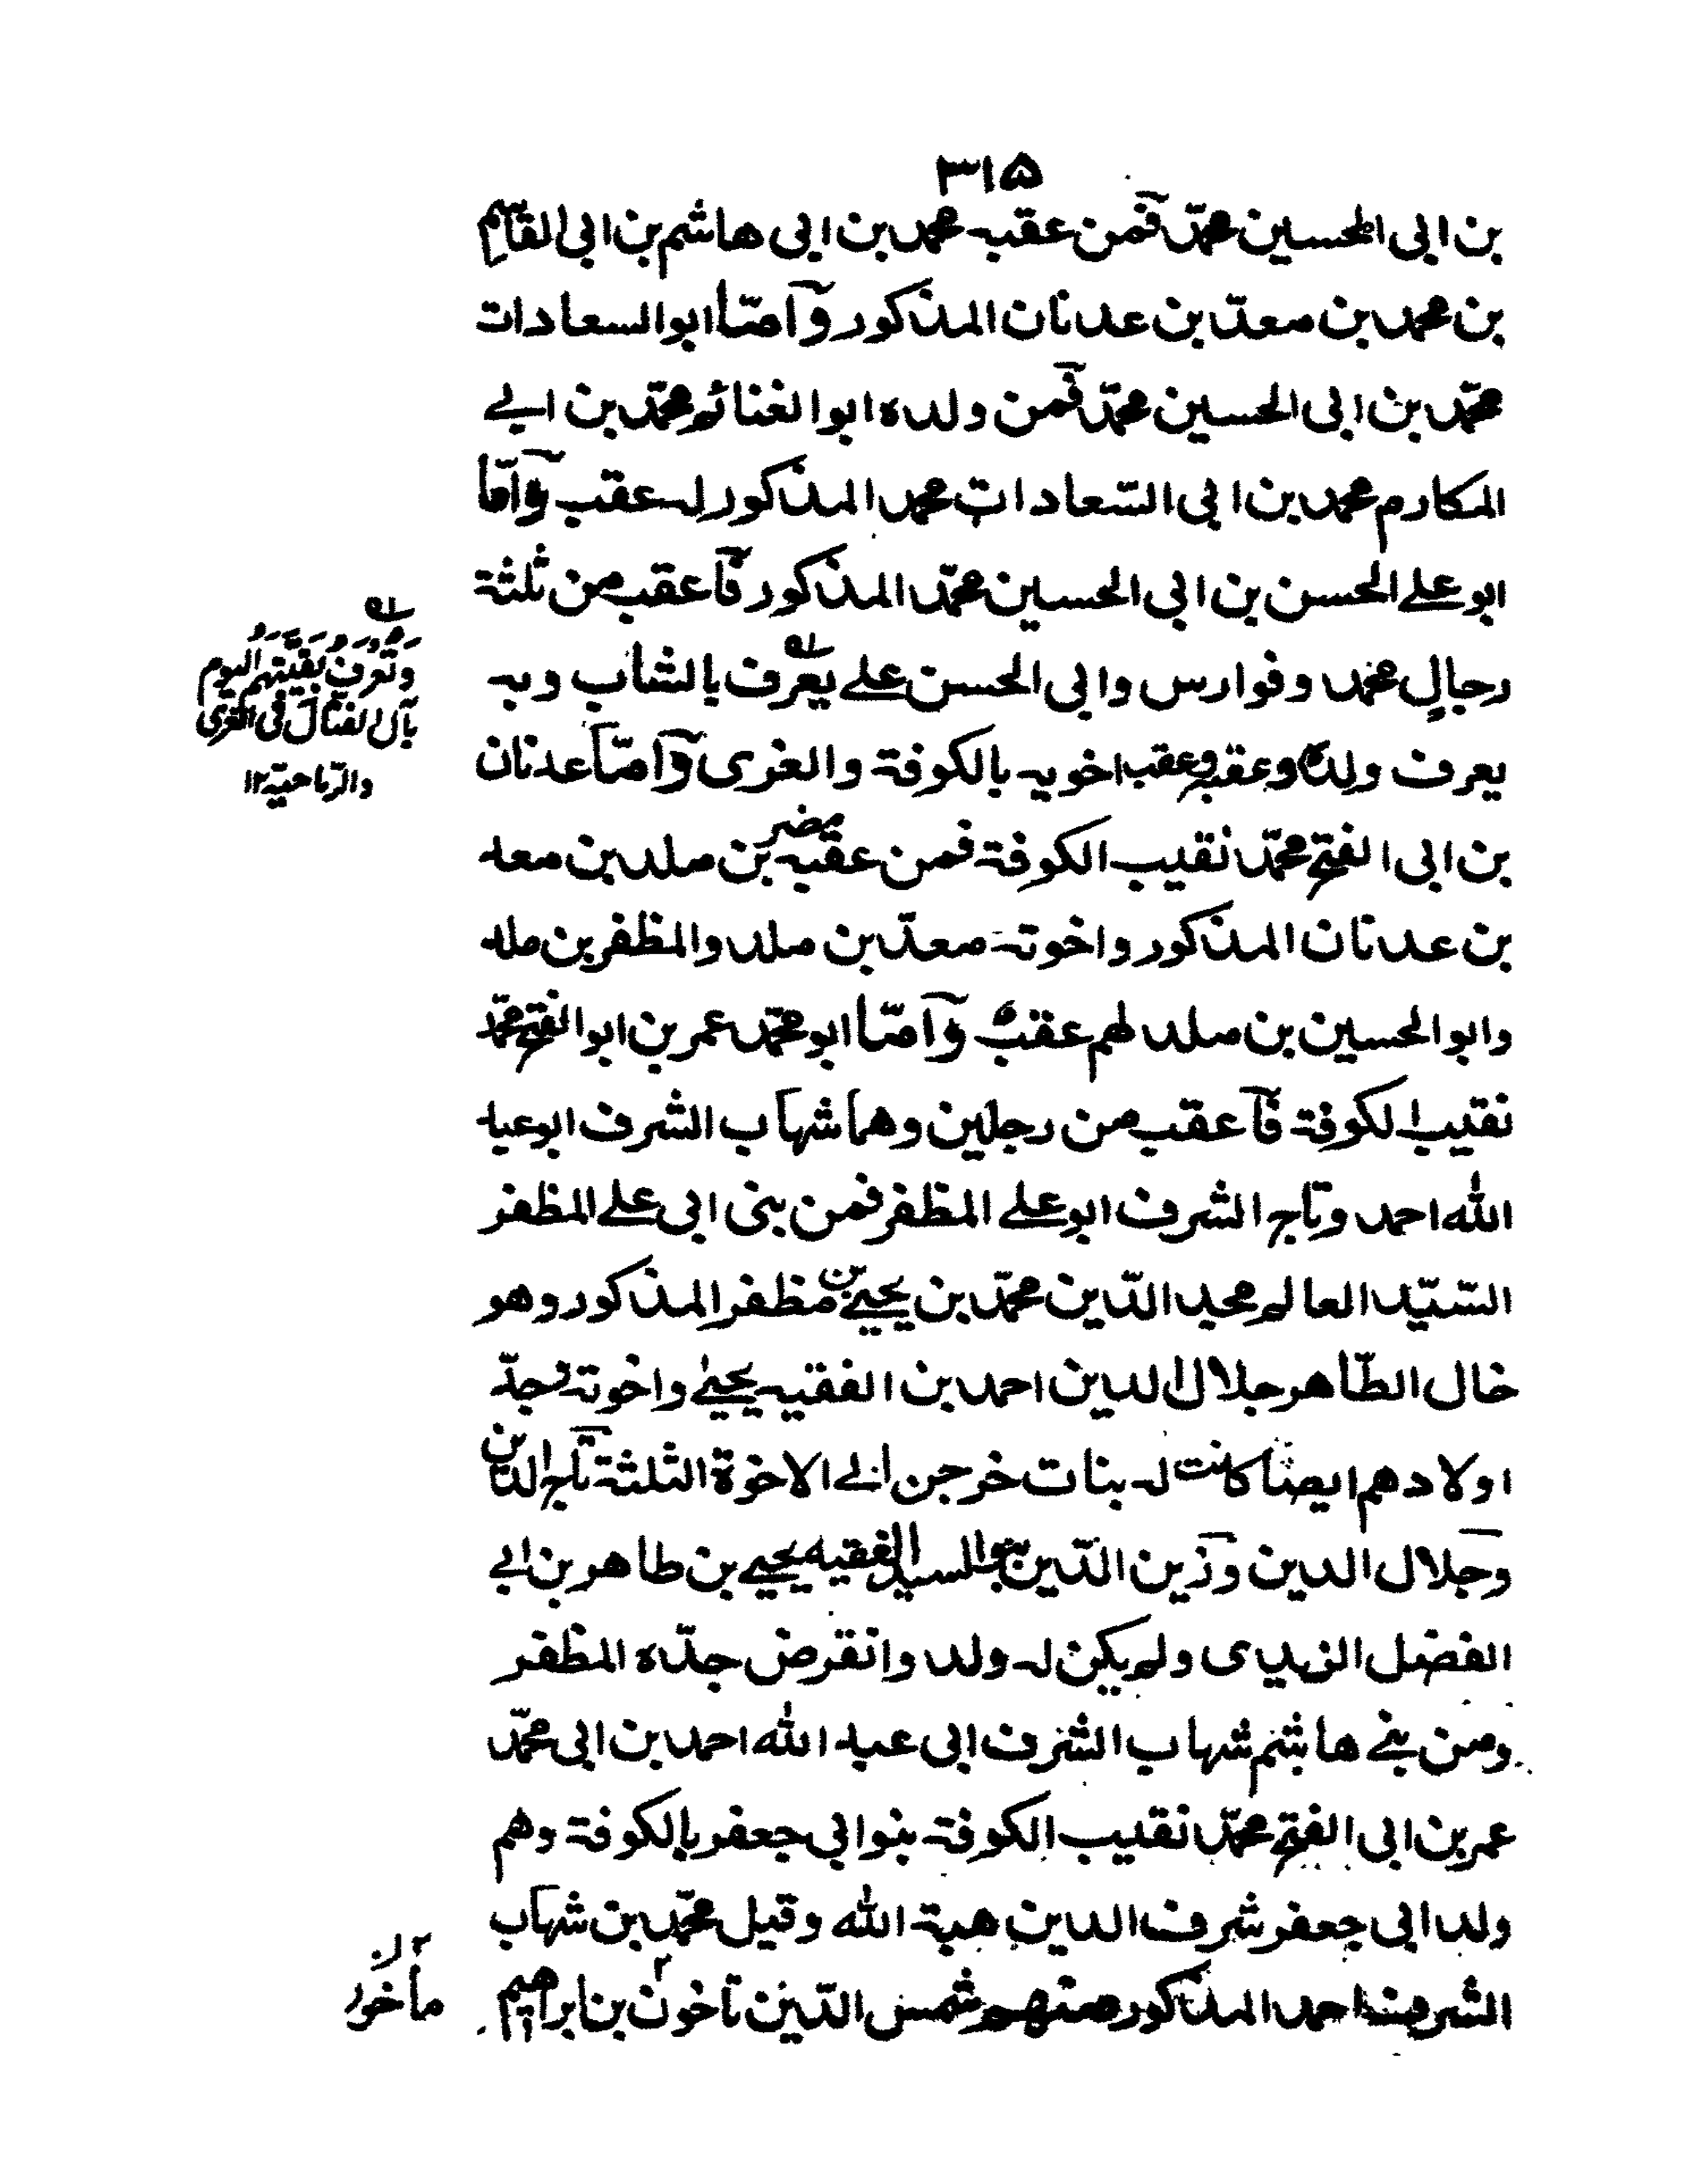 ٣١٥
بن ابى الحسين محمّد فمن عقبه محمد بن ابى هاشم بن ابى القاسم
بن محمد بن معدّ بن عدنان المذكور وآمّا ابوالسعادات
محمّد بن ابى الحسين محمّد فمن ولده ابوالغنائم محمّد بن ابے
المكارم محمد بن ابى السّعادات محمد المذكور له عقب وآمّا
ابوعلے الحسن بن ابى الحسين محمّد المذكور فآعقب من ثلثة
رجالٍ محمد وفوارس وابى الحسن علے يعرف بالشاب وبه
يعرف ولده وعقبه وعقب اخويه بالكوفة والغرى وآمّا عدنان
بن ابى الفتح محمّد نقيب الكوفة فمن عقبه مضر بن ملد بن معد
بن عدنان المذكور واخوته معدّ بن ملد والمظفر بن ملد
وابوالحسين بن ملد لهم عقبٌ وآمّا ابومحمّد عمر بن ابوالفتح محمّد
نقيب الكوفة فآعقب من رجلين وهما شهاب الشرف ابوعبد
الله احمد وتاج الشرف ابوعلے المظفر فمن بنى ابى علے المظفر
السّيّد العالم مجد الدّين محمّد بن يحيےٰ بن مظفر المذكور وهو
خال الطّاهر جلال الدين احمد بن الفقيه يحيےٰ واخوته وجدّ
اولادهم ايضا كانت له بنات خرجن الے الاخوة الثلثة تاج الدين
وجلال الدين وزين الدّين بنوا السيد الفقيه يحيے بن طاهر بن ابے
الفضل الزيدى ولم يكن له ولد وانقرض جدّه المظفر
ومن بنے هاشم شهاب الشرف ابى عبد الله احمد بن ابى محمّد
عمر بن ابى الفتح محمّد نقيب الكوفة بنوا ابى جعفر بالكوفة وهم
ولد ابى جعفر شرف الدين هبة الله وقيل محمّد بن شهاب
الشرف احمد المذكور منهم شمس الدّين تاخون بن ابراهيم
وَتُعرَفُ بَقيَّتهُم اليوم
بآل الفتّال فى القرى
والرّماحيّة ١٢
ماخور